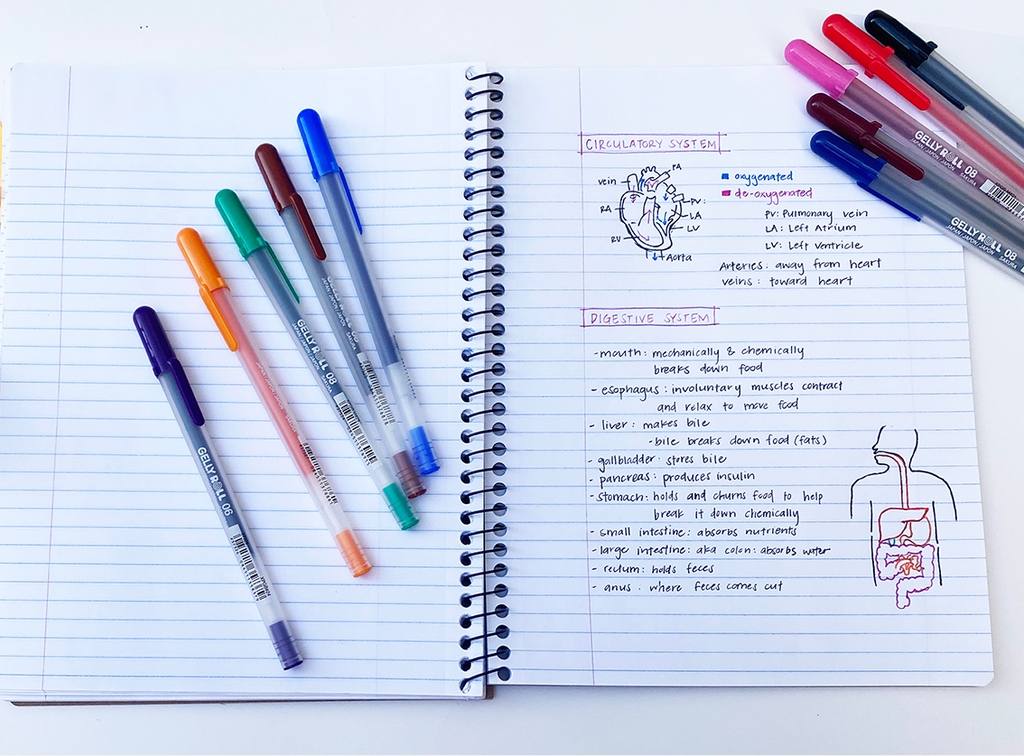 CIRCULATORY SYSTEM
vein
PA
RA
PV
LA
LV
RV
Aorta
oxygenated
de-oxygenated
PV: Pulmonary vein
LA: Left Atrium
LV: Left Ventricle
Arteries: away from heart
veins: toward heart
DIGESTIVE SYSTEM
- mouth: mechanically & chemically
breaks down food
- esophagus: involuntary muscles contract
and relax to move food
- liver: makes bile
- bile breaks down food (fats)
- gallbladder: stores bile
- pancreas: produces insulin
- stomach: holds and churns food to help
break it down chemically
- small intestine: absorbs nutrients
- large intestine: aka colon: absorbs water
- rectum: holds feces
- anus: where feces comes out
GELLY ROLL 06
JAPAN/JAPON/JAPÓN SAKURA
GELLY ROLL 08
JAPAN/JAPON/JAPÓN SAKURA
GELLY ROLL 08
JAPAN/JAPON/JAPÓN SAKURA
GELLY ROLL 08
JAPAN/JAPON/JAPÓN SAKURA